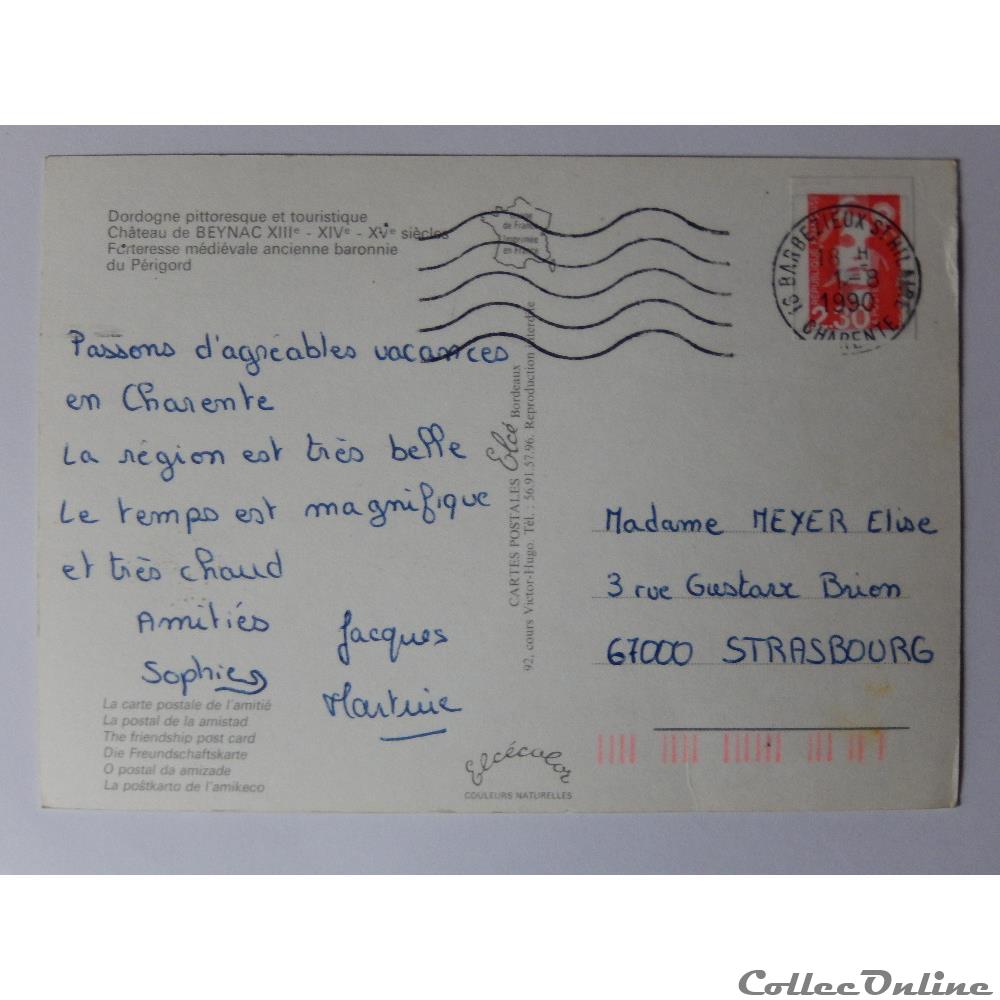 Dordogne pittoresque et touristique
Château de BEYNAC XIIIe - XIVe - XVe siècles
Forteresse médiévale ancienne baronnie
du Périgord
de France
imprimée
en France
16 BARBEZIEUX ST HILAIRE
18 H
1-8
1990
CHARENTE
2,30
Passons d'agréables vacances
en Charente
La région est très belle
Le temps est magnifique
et très chaud
Amitiés
Jacques
Sophie
Martine
La carte postale de l'amitié
La postal de la amistad
The friendship post card
Die Freundschaftskarte
O postal da amizade
La poŝtkarto de l'amikeco
CARTES POSTALES Elcé Bordeaux
92, cours Victor-Hugo. Tél. : 56.91.57.96. Reproduction interdite
Elcécolor
COULEURS NATURELLES
Madame MEYER Elise
3 rue Gustave Brion
67000 STRASBOURG
CollecOnline